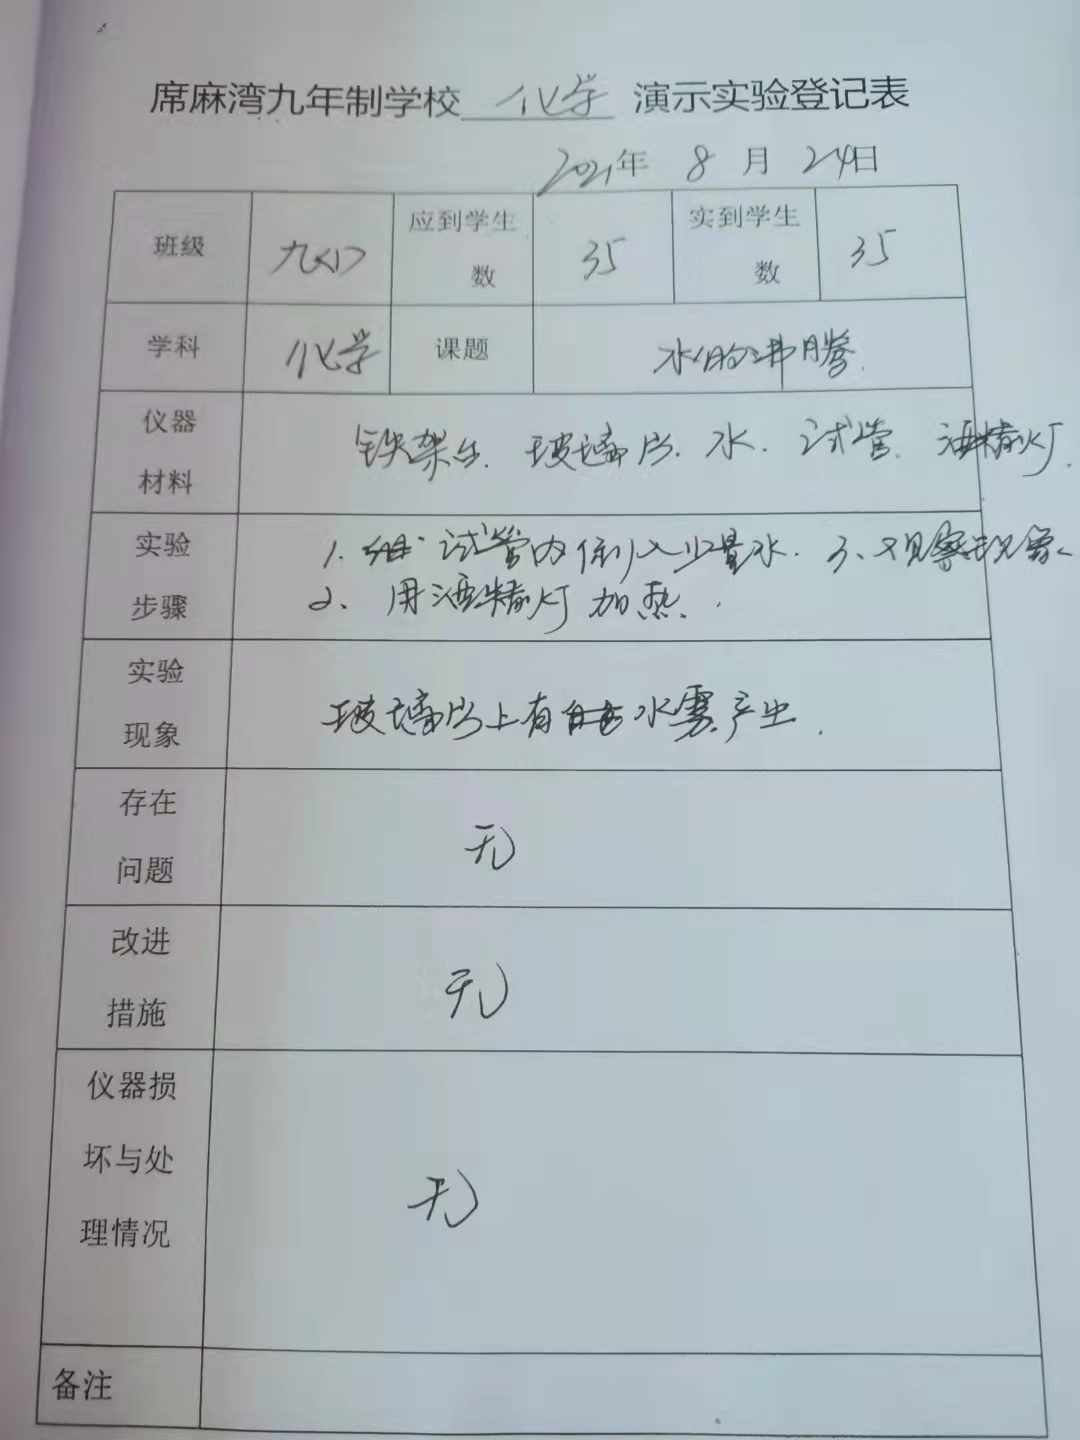 席麻湾九年制学校 化学 演示实验登记表
2021年 8 月 24日
班级 九(1) 应到学生数 35 实到学生数 35
学科 化学 课题 水的沸腾
仪器材料 铁架台、玻璃片、水、试管、酒精灯.
实验步骤 1. 试管内倒入少量水. 3、观察现象
2、用酒精灯加热.
实验现象 玻璃片上有水雾产生.
存在问题 无
改进措施 无
仪器损坏与处理情况 无
备注